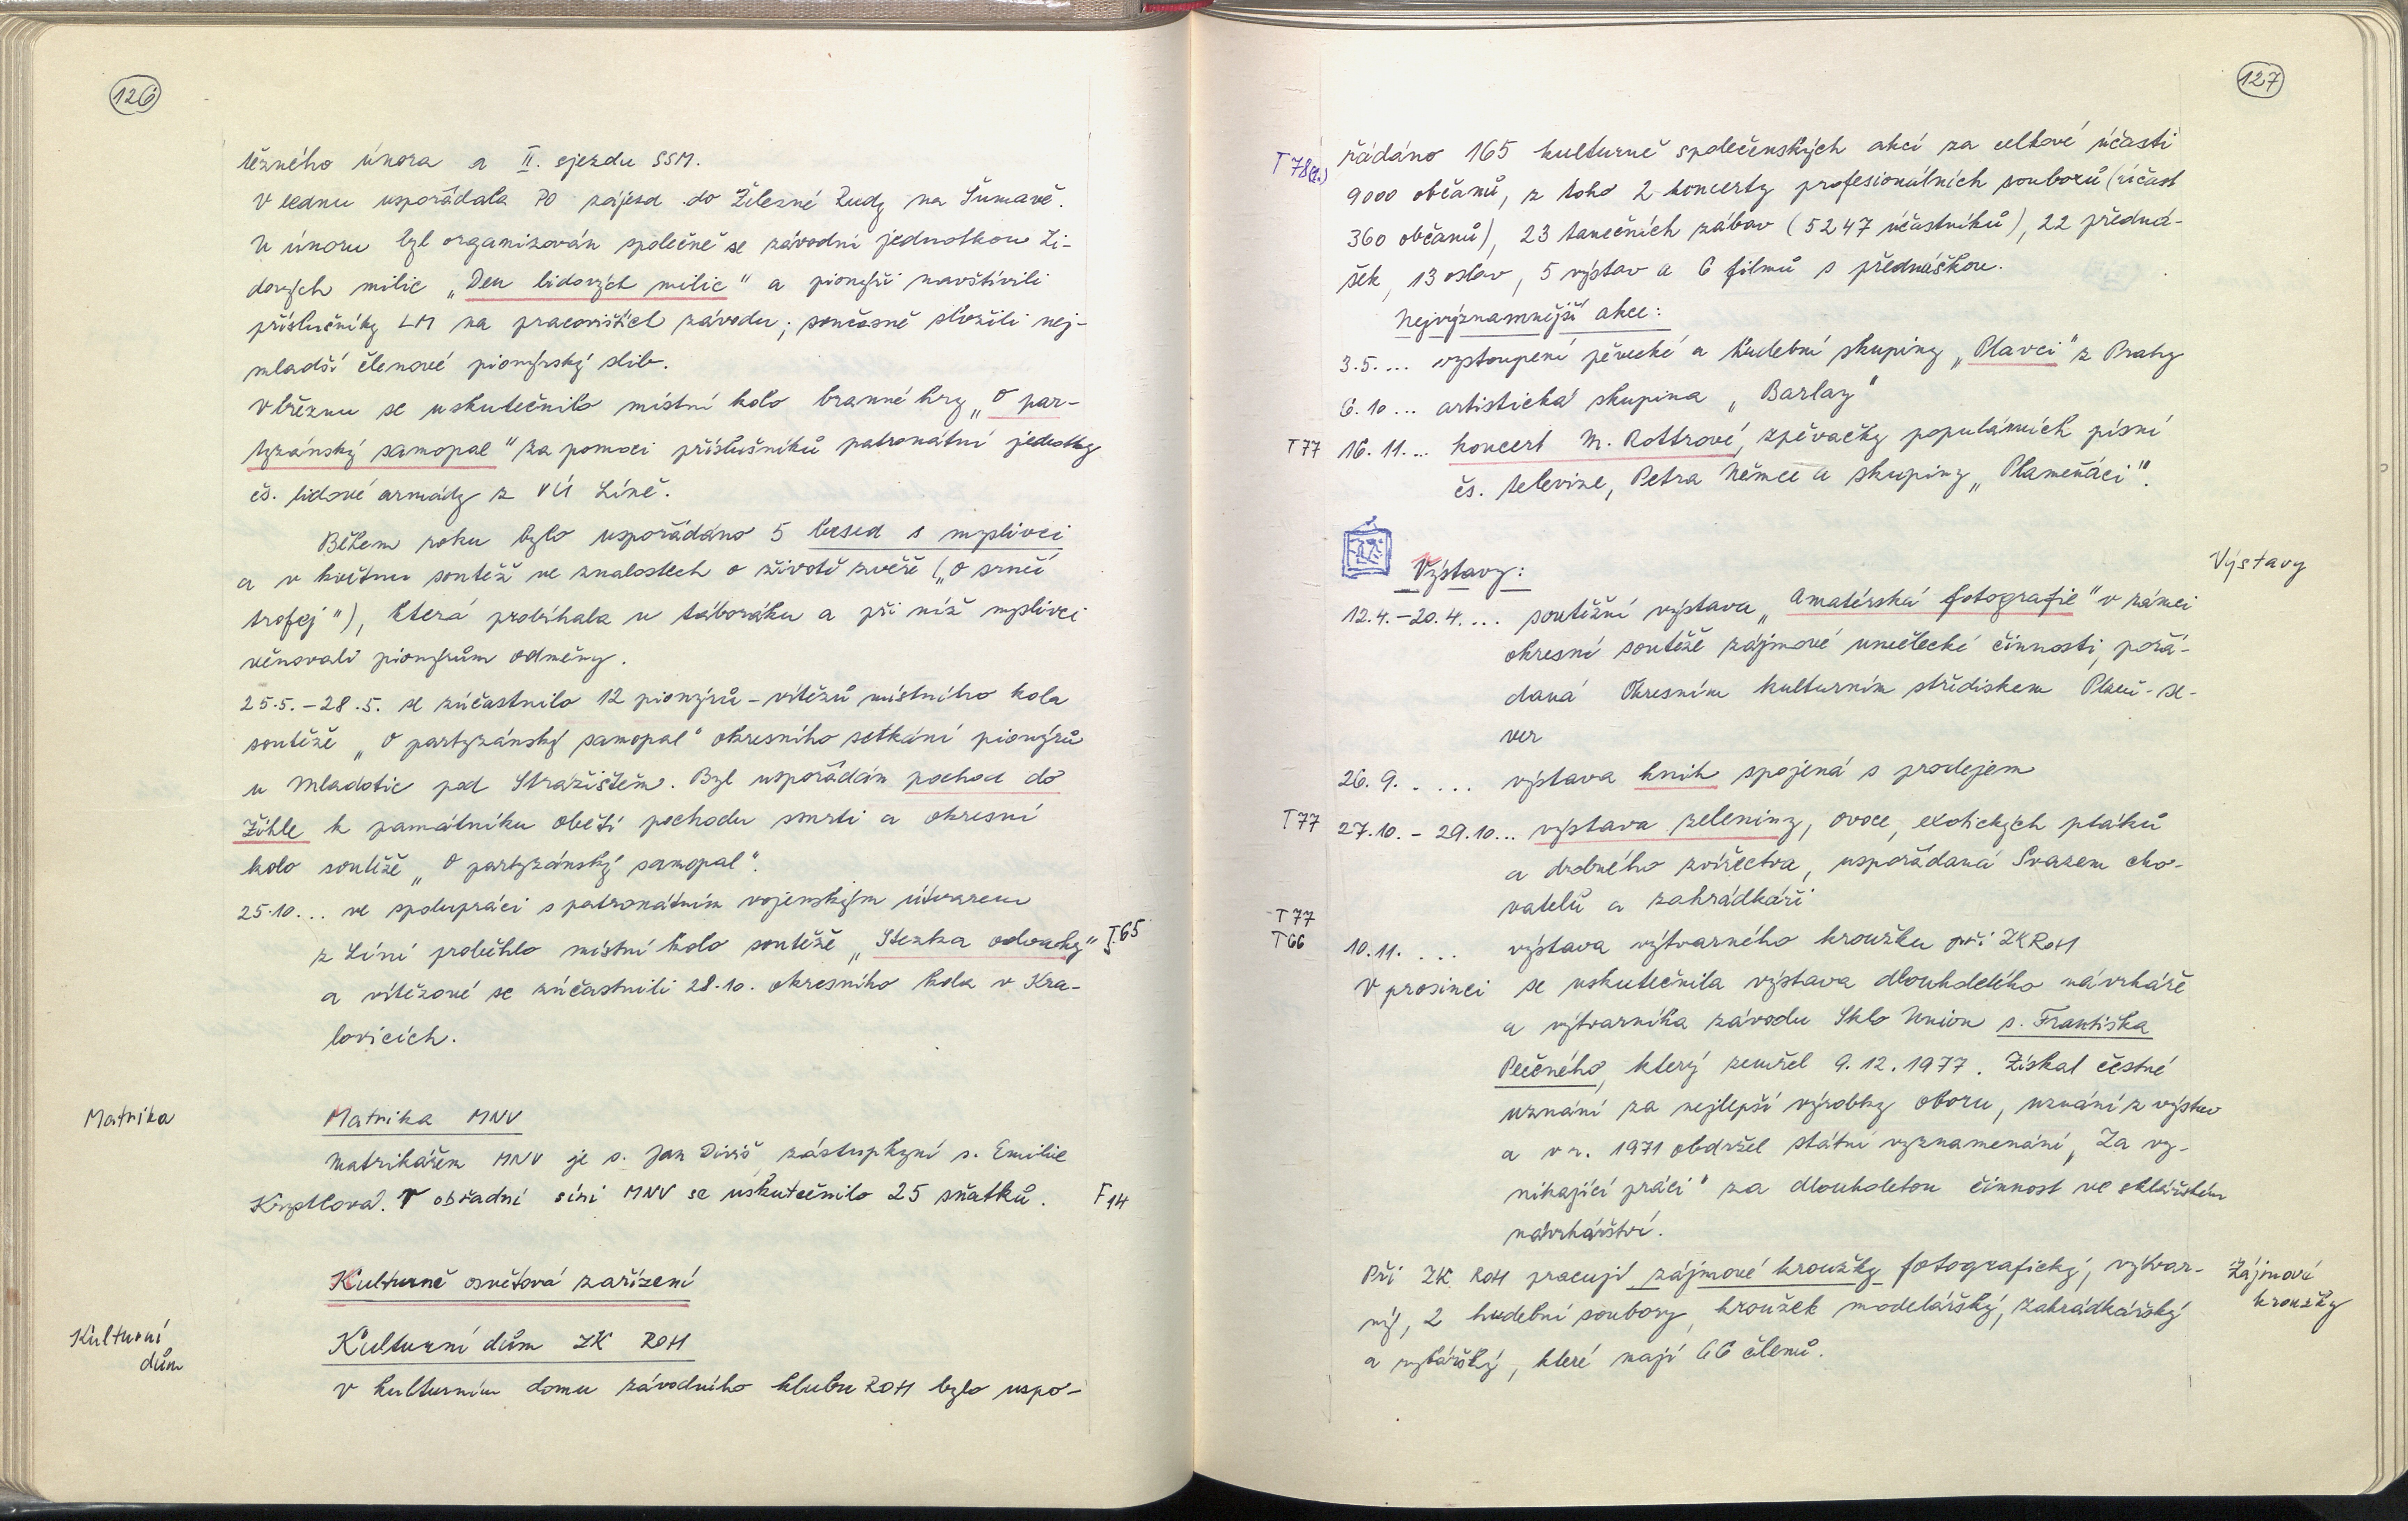 126
těžného února a II. sjezdu SSM.
V lednu uspořádala PO zájezd do Železné Rudy na Šumavě.
V únoru byl organizován společně se závodní jednotkou Li-
dových milic „Den lidových milic" a pionýři navštívili
příslušníky LM na pracovištích závodu; současně složili nej-
mladší členové pionýrský slib.
V březnu se uskutečnilo místní kolo branné hry „O par-
tyzánský samopal" za pomoci příslušníků patronátní jednotky
čs. lidové armády z VÚ Líně.
Během roku bylo uspořádáno 5 besed s myslivci
a v květnu soutěž ve znalostech o životě zvěře („O srnčí
trofej"), která probíhala u táboráku a při níž myslivci
věnovali pionýrům odměny.
25.5.-28.5. se zúčastnilo 12 pionýrů - vítězů místního kola
soutěže „O partyzánský samopal" okresního setkání pionýrů
u Mladotic pod Stražištěm. Byl uspořádán pochod do
Žihle k památníku obětí pochodu smrti a okresní
kolo soutěže „O partyzánský samopal".
25.10... ve spolupráci s patronátním vojenským útvarem
z Líní proběhlo místní kolo soutěže „Stezka odvahy" T.65
a vítězové se zúčastnili 28.10. okresního kola v Kra-
lovicích.
Matrika
Matrika MNV
Matrikářem MNV je s. Jan Diviš, zástupkyní s. Emilie
V obřadní síni MNV se uskutečnilo 25 sňatků. F 14
Kulturně osvětová zařízení
Kulturní
dům
Kulturní dům ZK ROH
V kulturním domu závodního klubu ROH bylo uspo-
127
T 78
řádáno 165 kulturně společenských akcí za celkové účasti
9000 občanů, z toho 2 koncerty profesionálních souborů (účast
360 občanů), 23 tanečních zábav (5247 účastníků), 22 předná-
šek, 13 oslav, 5 výstav a 6 filmů s přednáškou.
Nejvýznamnější akce:
3.5.... vystoupení pěvecké a hudební skupiny „Plavci" z Prahy
6.10... artistická skupina „Barlay"
T77 16.11... koncert M. Rottrové, zpěvačky populárních písní
čs. televize, Petra Němce a skupiny „Plameňáci".
Výstavy:
Výstavy
12.4.-20.4.... soutěžní výstava „Amatérská fotografie" v rámci
okresní soutěže zájmové umělecké činnosti, pořá-
daná Okresním kulturním střediskem Plzeň-se-
ver
26.9. .... výstava knih spojená s prodejem
T77 27.10.-29.10... výstava zeleniny, ovoce, exotických ptáků
a drobného zvířectva, uspořádaná Svazem cho-
vatelů a zahrádkáři
T77
T66
10.11. ... výstava výtvarného kroužku při ZK ROH
V prosinci se uskutečnila výstava dlouholetého návrháře
a výtvarníka závodu Sklo Union s. Františka
Pečného, který zemřel 9.12.1977. Získal čestné
uznání za nejlepší výrobky oboru, uznání z výstav
a v r. 1971 obdržel státní vyznamenání „Za vy-
nikající práci" za dlouholetou činnost ve sklářském
návrhářství.
Při ZK ROH pracují zájmové kroužky fotografický, výtvar-
ný, 2 hudební soubory, kroužek modelářský, zahrádkářský
a rybářský, které mají 66 členů.
Zájmové
kroužky